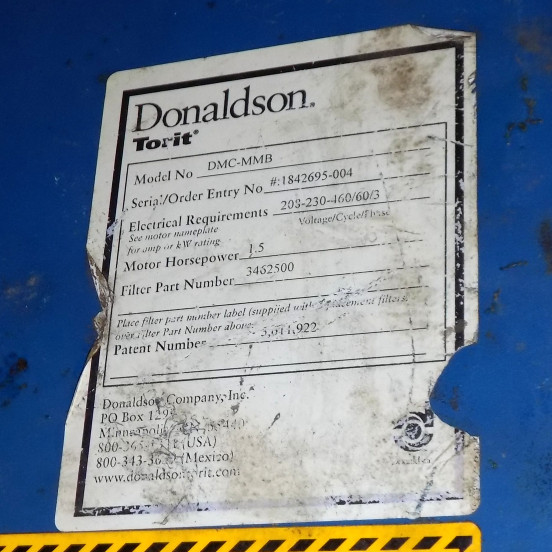 Donaldson.
Torit®
Model No DMC-MMB
Serial/Order Entry No #:1842695-004
Electrical Requirements 208-230-460/60/3
See motor nameplate Voltage/Cycle/Phase
for amp or kW rating
Motor Horsepower 1.5
Filter Part Number 3462500
Place filter part number label (supplied with replacement filters)
over Filter Part Number above.
Patent Number
Donaldson Company, Inc.
PO Box
Minneapolis
(USA)
(Mexico)
www.donaldsontorit.com
Donaldson